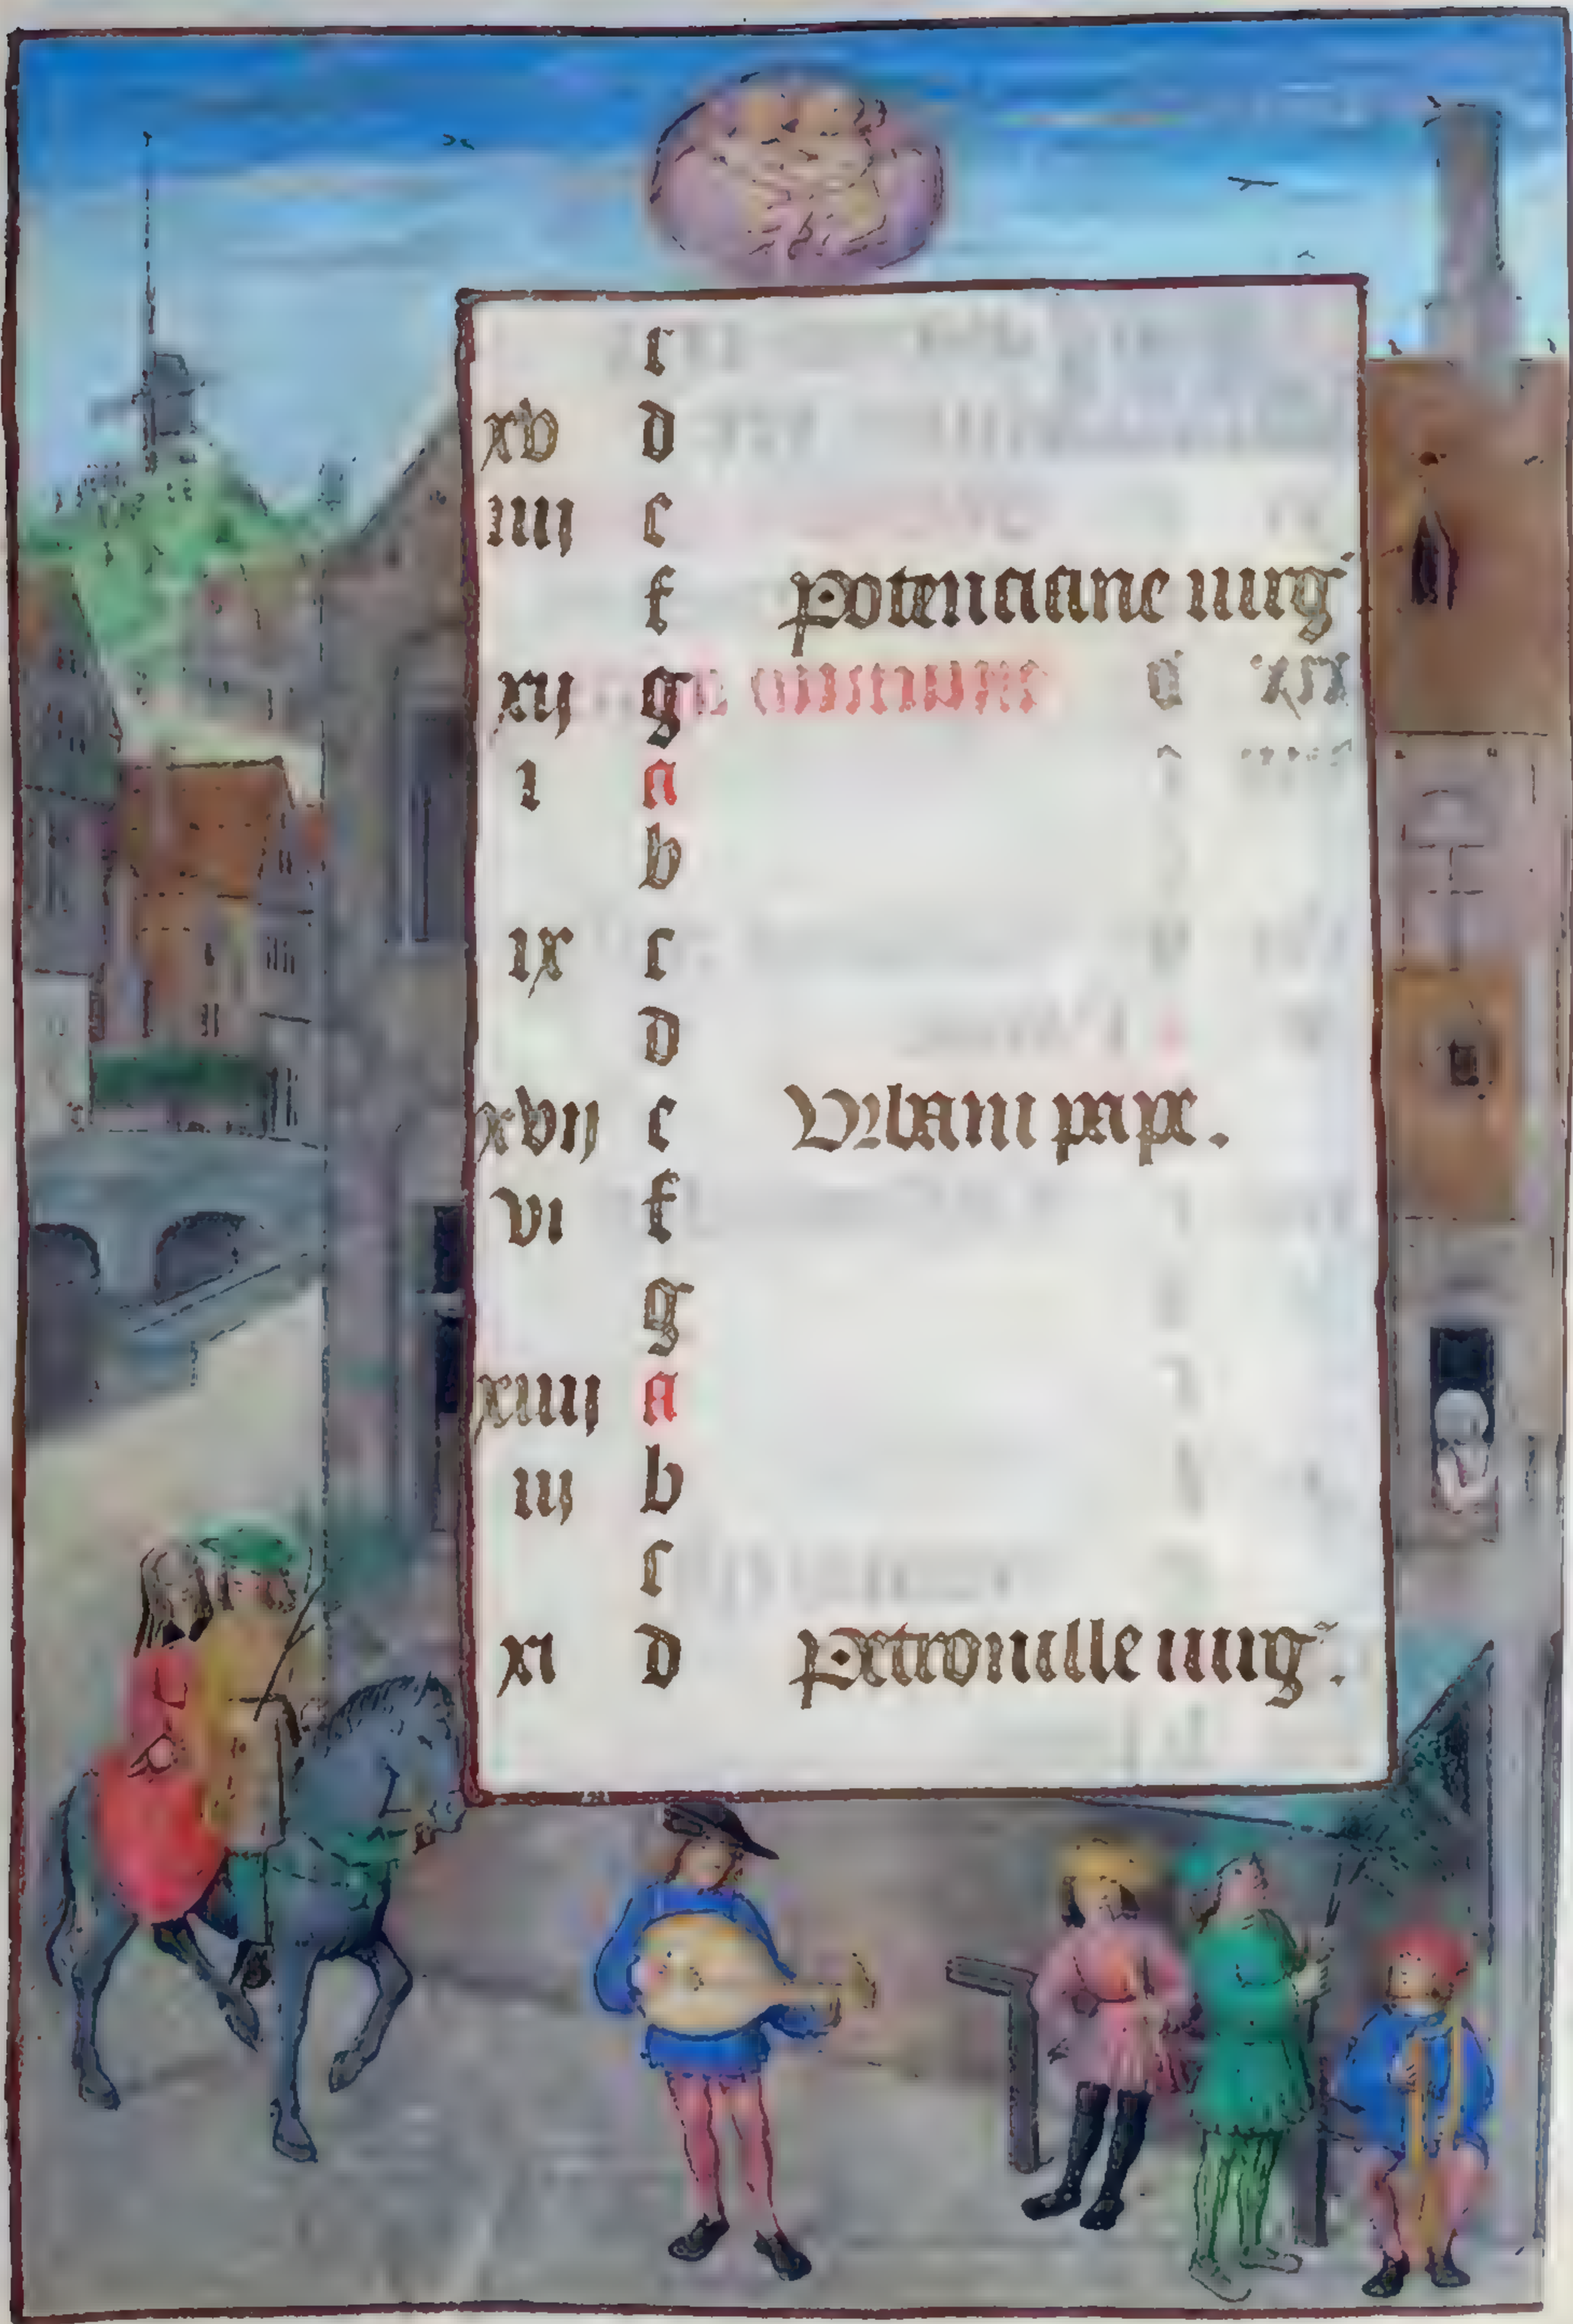 c
xv d
iiij e
f Potenciane virg'
xij g
i a
b
ix c
d
xvij e Vrbani pape.
vi f
g
xiiij a
iij b
c
xi d Petronille virg'.